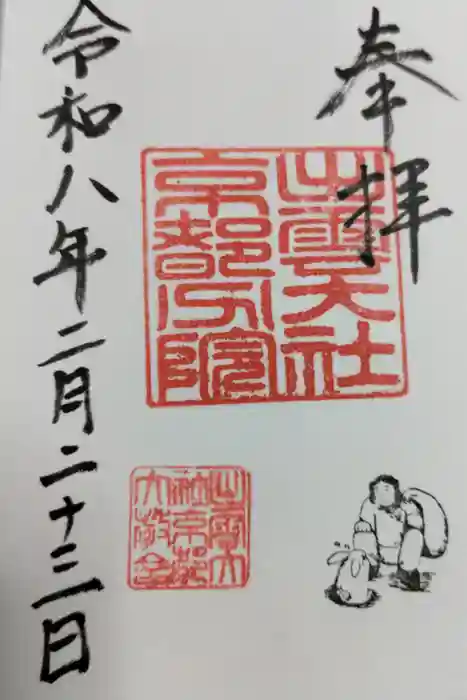 奉拝
出雲大社
京都分院
出雲大
社京都
令和八年二月二十三日